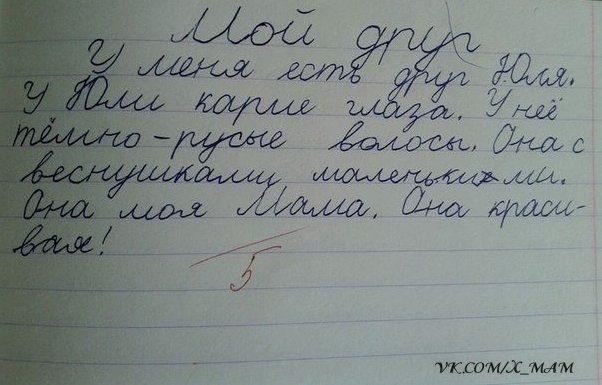 Мой друг
У меня есть друг Юля.
У Юли карие глаза. У неё
тёмно-русые волосы. Она с
веснушками маленькими.
Она моя Мама. Она краси-
вая!
5
VK.COM/X_MAM